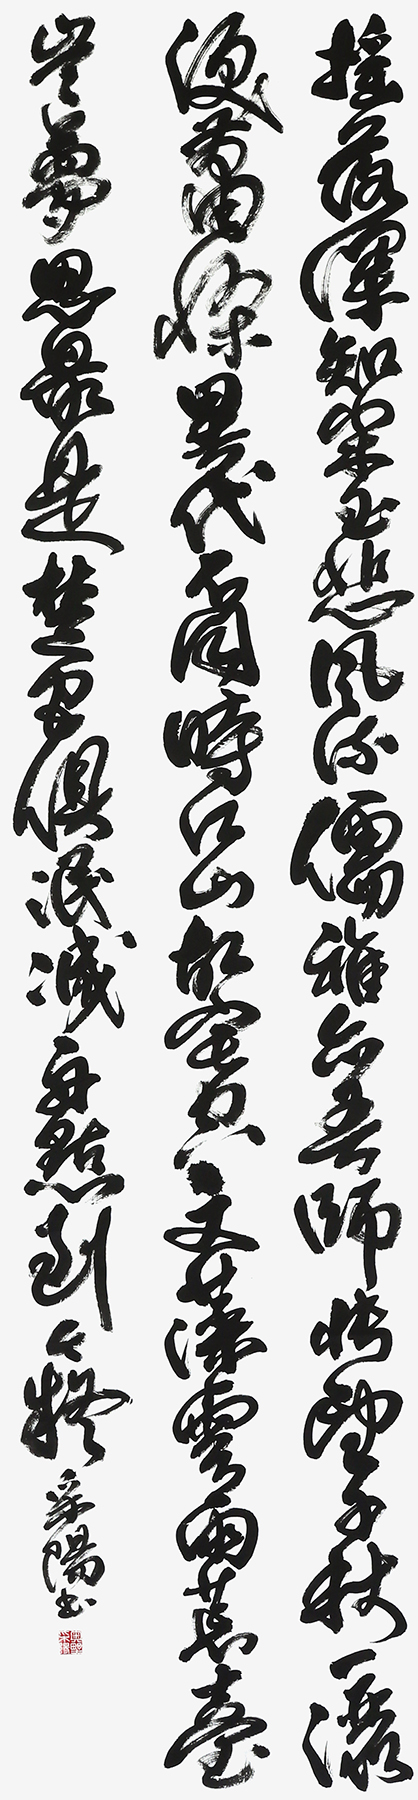 搖落深知宋玉悲風流儒雅亦吾師悵望千秋一灑
淚蕭條異代不同時江山故宅空文藻雲雨荒臺
豈夢思最是楚宮俱泯滅舟點到今疑采陽書